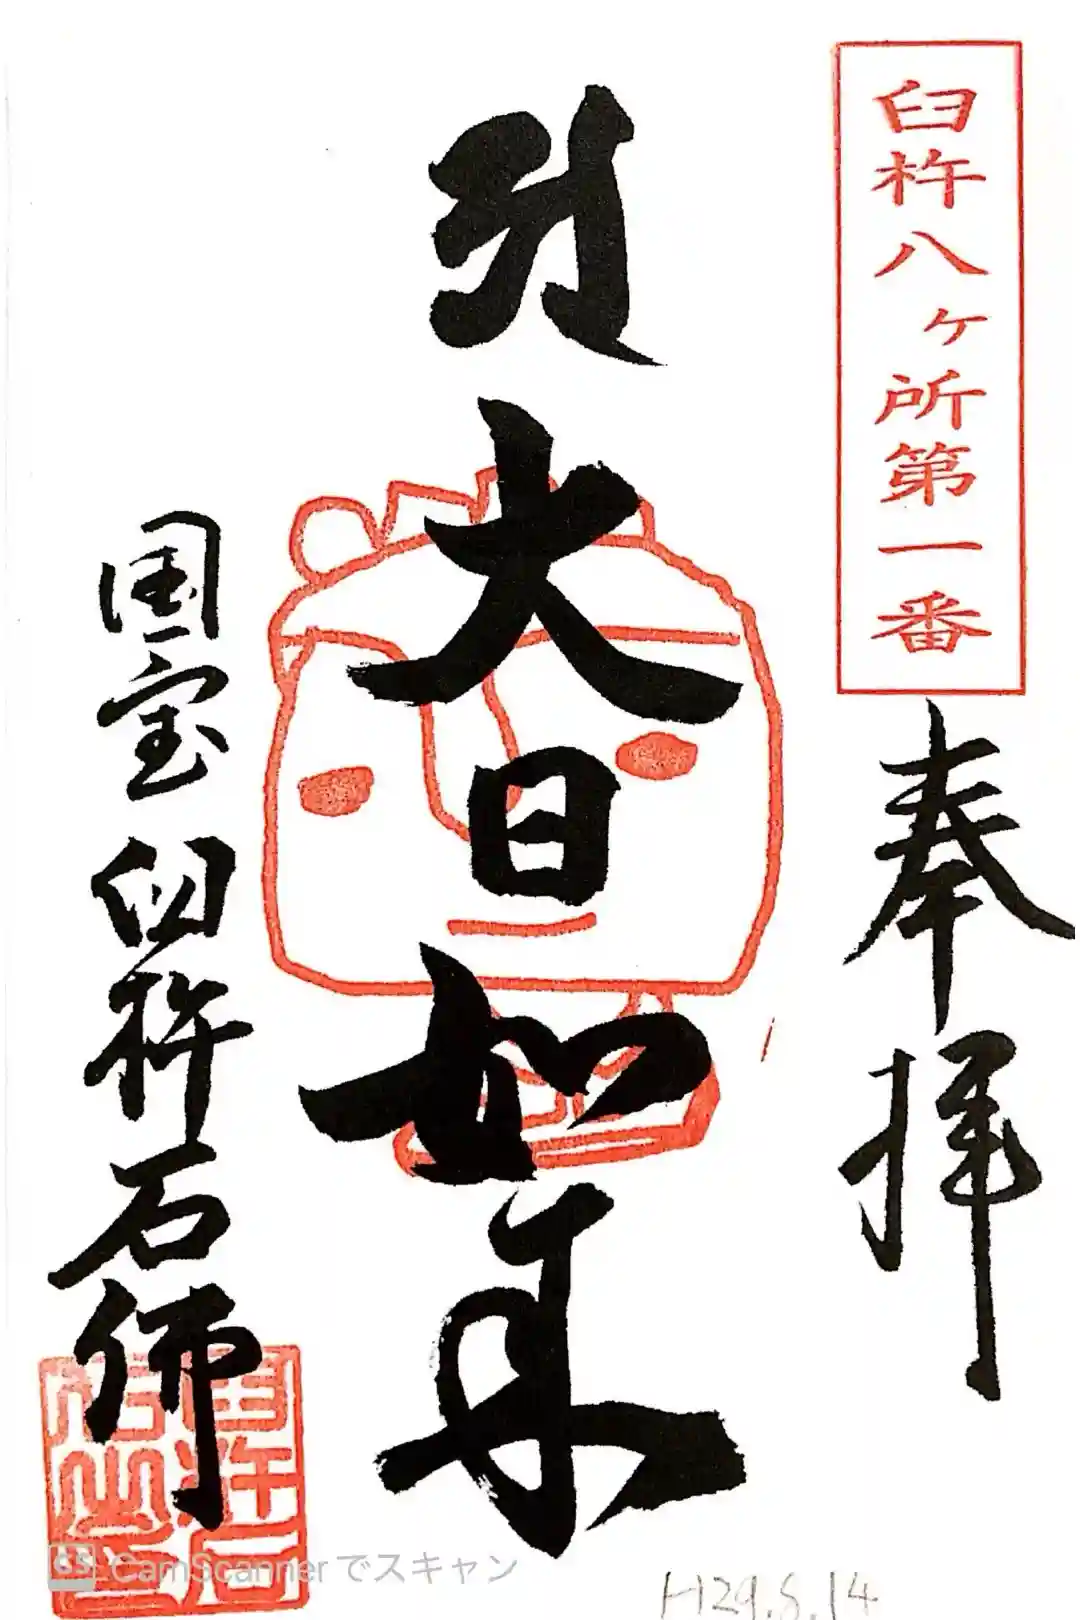 臼杵八ヶ所第一番
奉拝
大日如来
国宝臼杵石佛
CS CamScannerでスキャン
H29.8.14